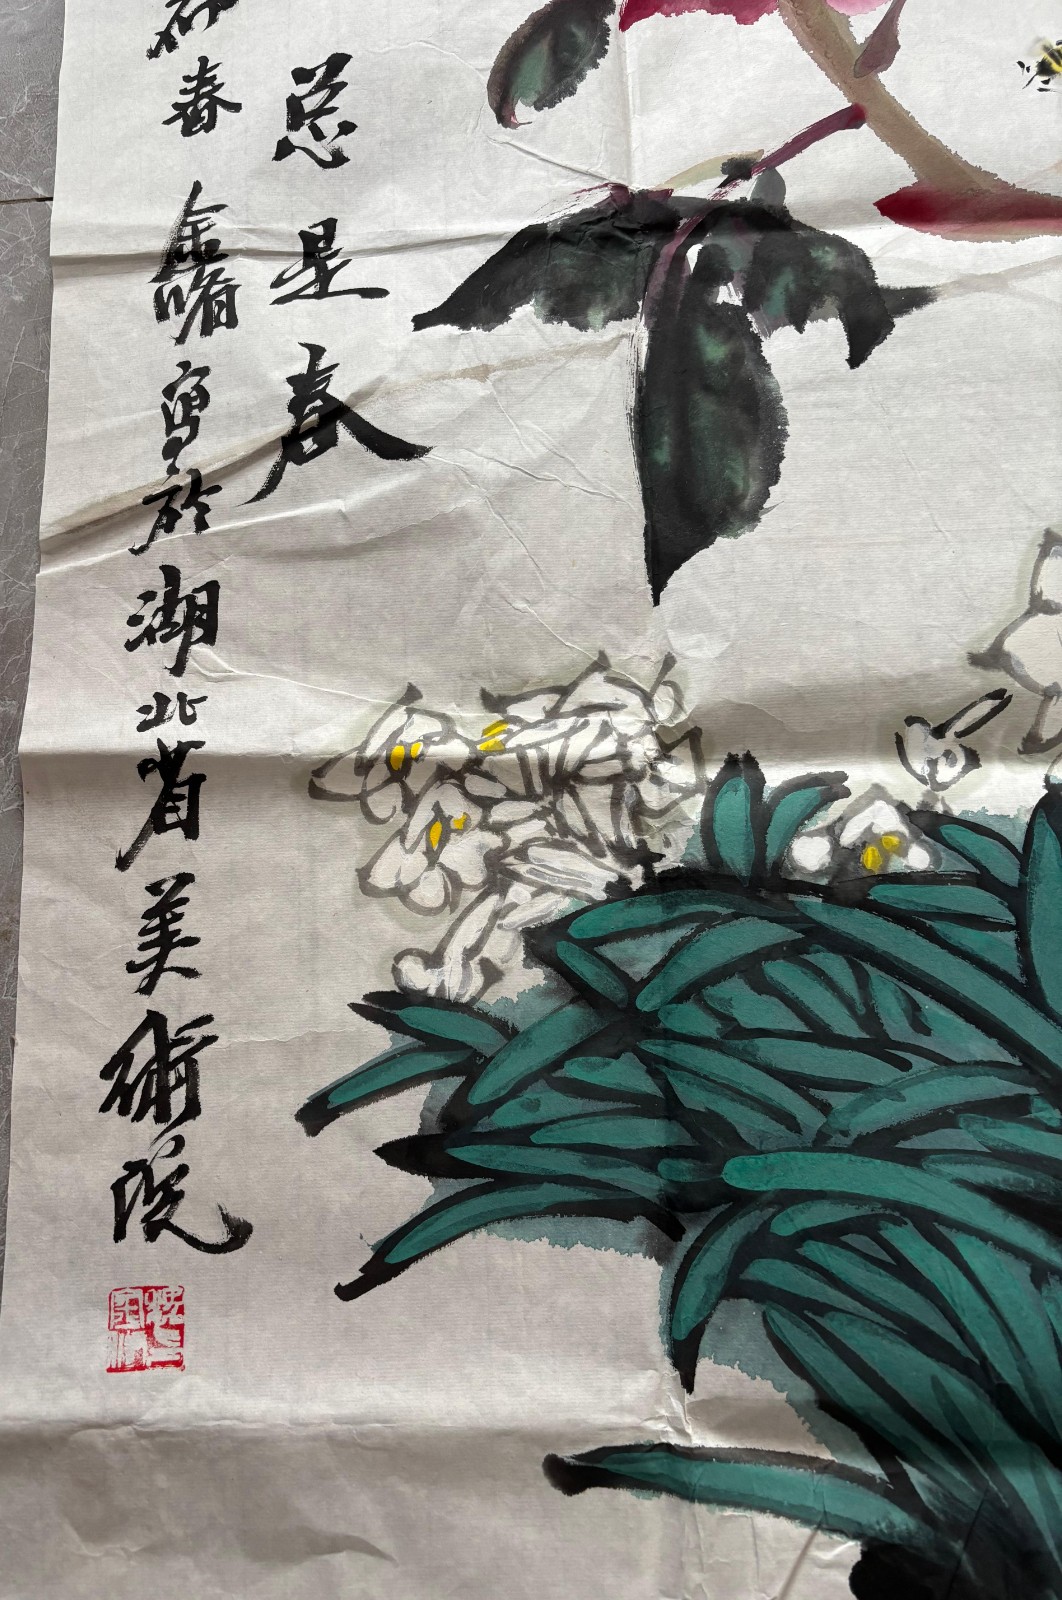 总是春
春鑫啃写於湖北省美術院